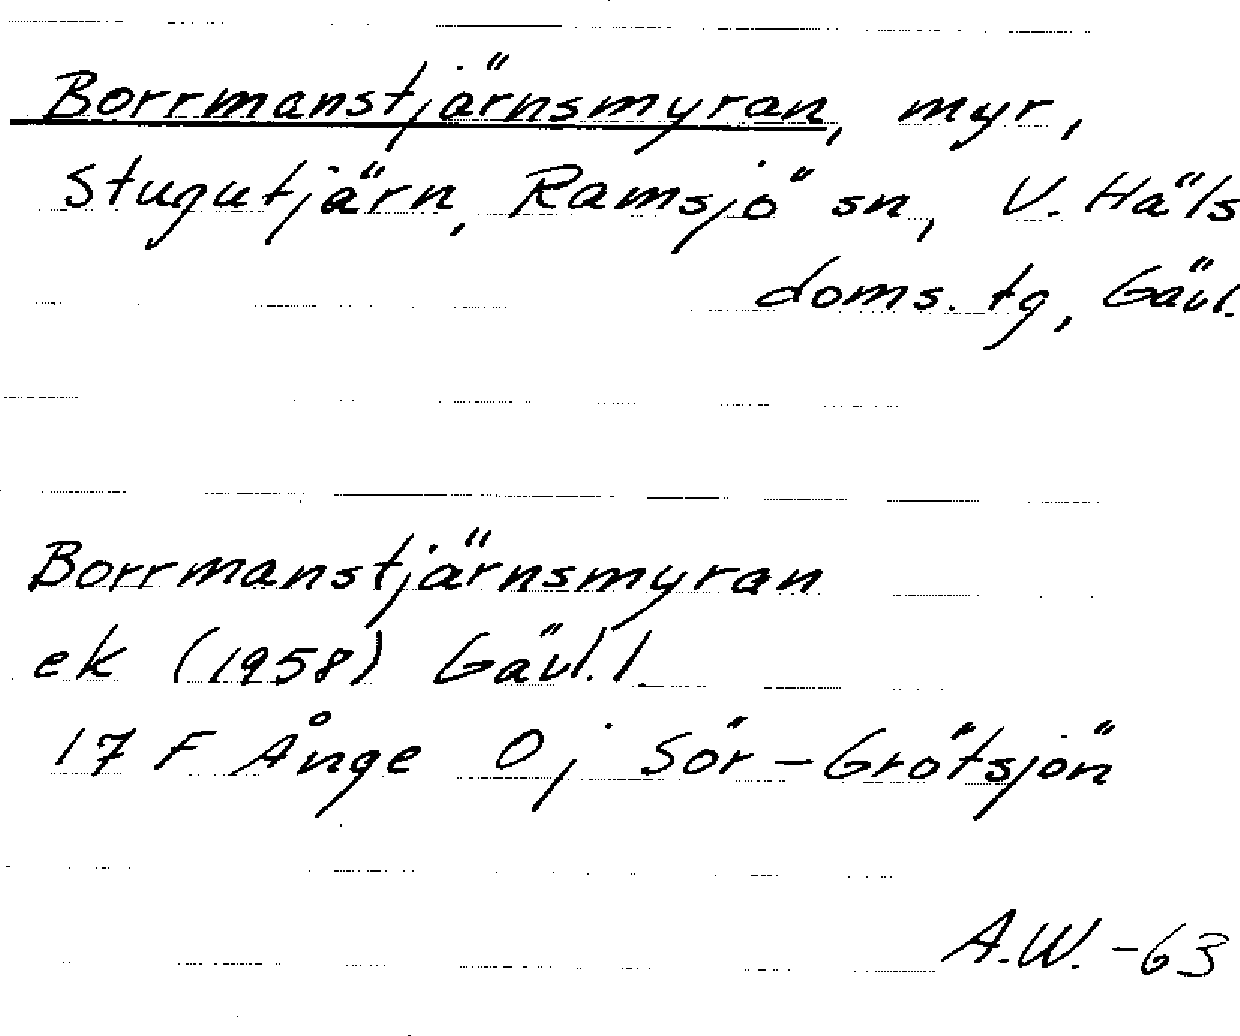 Borrmanstjärnsmyran, myr,
Stugutjärn, Ramsjö sn, V. Häls
doms. tg, Gävl.
Borrmanstjärnsmyran
ek (1958) Gävl.l.
17 F Ånge Oj Sör-Grötsjön
A.W.-63